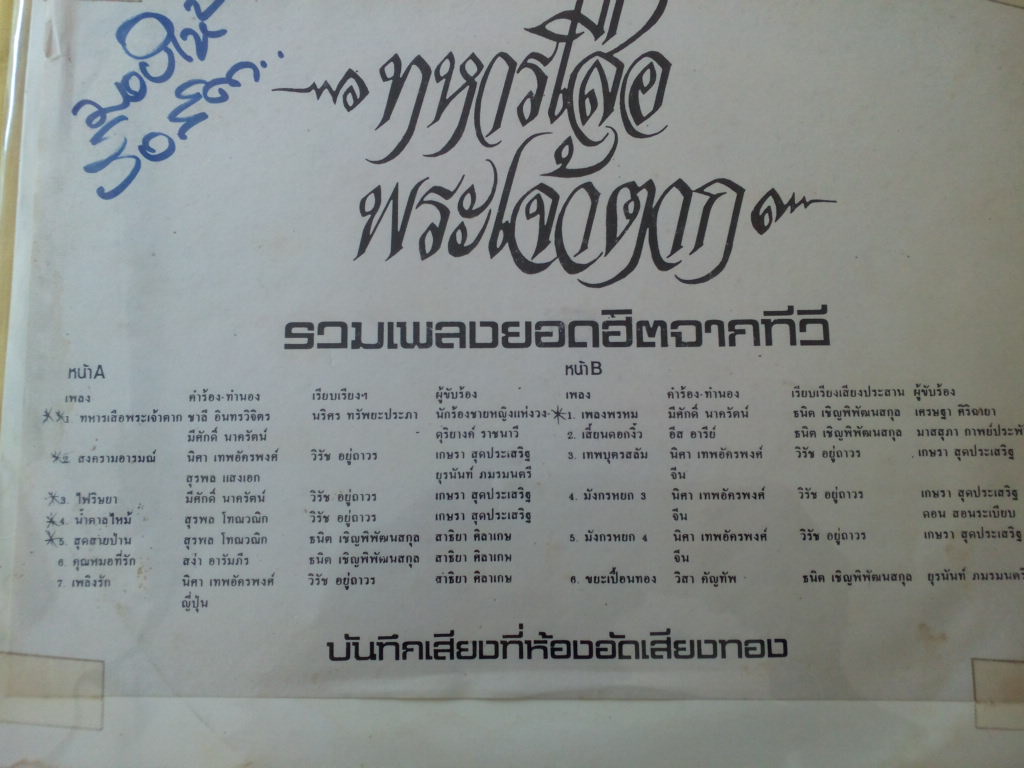 มอบให้
ทหารเสือ
พระเจ้าตาก
รวมเพลงยอดฮิตจากทีวี
หน้า A
เพลง คำร้อง-ทำนอง เรียบเรียงฯ ผู้ขับร้อง
1. ทหารเสือพระเจ้าตาก ชาลี อินทรวิจิตร นริศร ทรัพยะประภา นักร้องชายหญิงแห่งวง-
มีศักดิ์ นาครัตน์ ดุริยางค์ ราชนาวี
2. สงครามอารมณ์ นิศา เทพอัครพงศ์ วิรัช อยู่ถาวร เกษรา สุดประเสริฐ
สุรพล แสงเอก ยุรนันท์ ภมรมนตรี
3. ไฟริษยา มีศักดิ์ นาครัตน์ วิรัช อยู่ถาวร เกษรา สุดประเสริฐ
4. น้ำตาลไหม้ สุรพล โทณวณิก วิรัช อยู่ถาวร เกษรา สุดประเสริฐ
5. สุดสายป่าน สุรพล โทณวณิก ธนิต เชิญพิพัฒนสกุล สาธิยา ศิลาเกษ
6. คุณหมอที่รัก สง่า อารัมภีร ธนิต เชิญพิพัฒนสกุล สาธิยา ศิลาเกษ
7. เพลิงรัก นิศา เทพอัครพงศ์ วิรัช อยู่ถาวร สาธิยา ศิลาเกษ
ญี่ปุ่น
หน้า B
เพลง คำร้อง-ทำนอง เรียบเรียงเสียงประสาน ผู้ขับร้อง
1. เพลงพรหม มีศักดิ์ นาครัตน์ ธนิต เชิญพิพัฒนสกุล เศรษฐา ศิริฉายา
2. เสี้ยนดอกงิ้ว อีส อารีย์ ธนิต เชิญพิพัฒนสกุล มาสสุภา กาพย์ประพั
3. เทพบุตรสลัม นิศา เทพอัครพงศ์ วิรัช อยู่ถาวร เกษรา สุดประเสริฐ
จีน
4. มังกรหยก 3 นิศา เทพอัครพงศ์ วิรัช อยู่ถาวร เกษรา สุดประเสริฐ
จีน ดอน สอนระเบียบ
5. มังกรหยก 4 นิศา เทพอัครพงศ์ วิรัช อยู่ถาวร เกษรา สุดประเสริฐ
จีน
6. ขยะเปื้อนทอง วิสา คัญทัพ ธนิต เชิญพิพัฒนสกุล ยุรนันท์ ภมรมนตรี
บันทึกเสียงที่ห้องอัดเสียงทอง